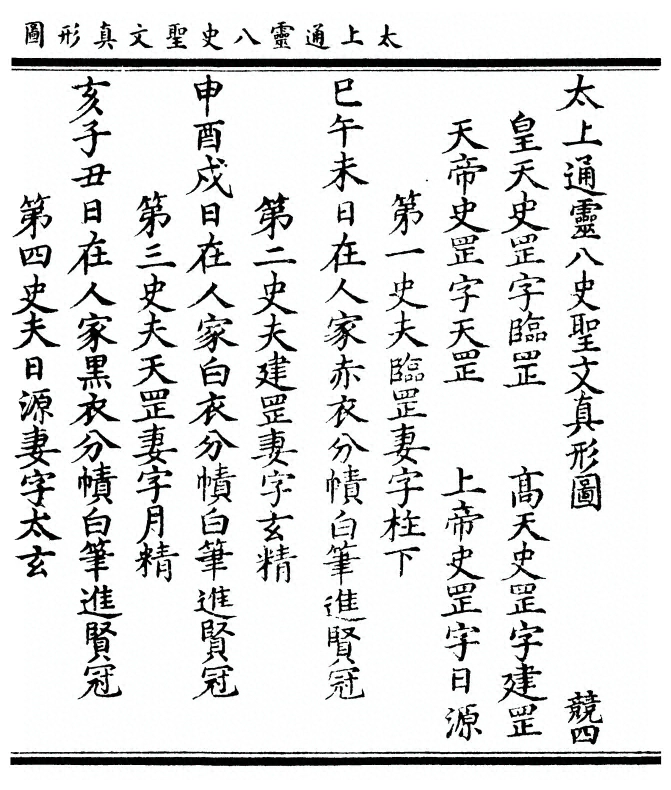 太上通靈八史聖文真形圖
太上通靈八史聖文真形圖 競四
皇天史罡字臨罡 高天史罡字建罡
天帝史罡字天罡 上帝史罡字日源
第一史夫臨罡妻字柱下
巳午未日在人家赤衣分幘白筆進賢冠
第二史夫建罡妻字玄精
申酉戍日在人家白衣分幘白筆進賢冠
第三史夫天罡妻字月精
亥子丑日在人家黑衣分幘白筆進賢冠
第四史夫日源妻字太玄